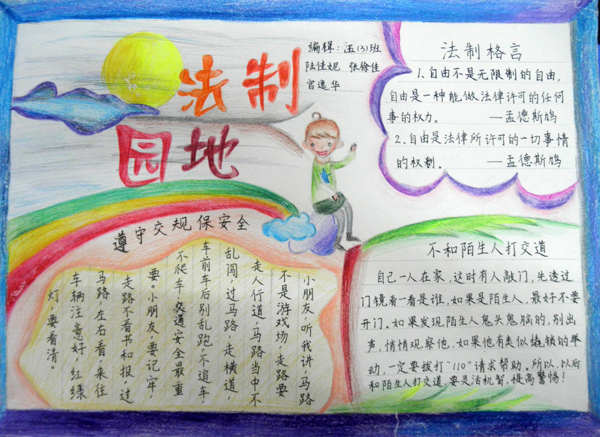 法制
园地
编辑:五(3)班
陆佳妮 张徐佳
宫逸华
法制格言
1.自由不是无限制的自由,
自由是一种能做法律许可的任何
事的权力。 —孟德斯鸠
2.自由是法律所许可的一切事情
的权利。 —孟德斯鸠
遵守交规保安全
小朋友,听我讲,马路
不是游戏场,走路要
走人行道,马路当中不
乱闯,过马路,走横道,
车前车后别乱跑,不追车
不爬车,交通安全最重
要。小朋友,要记牢,
走路不看书和报,过
马路左右看,来往
车辆注意好,红绿
灯,要看清。
不和陌生人打交道
自己一人在家,这时有人敲门,先透过
门镜看一看是谁,如果是陌生人,最好不要
开门。如果发现陌生人鬼头鬼脑的,别出
声,悄悄观察他,如果他有类似撬锁的举
动,一定要拨打"110"请求帮助。所以,以后
和陌生人打交道,要灵活机智,提高警惕!